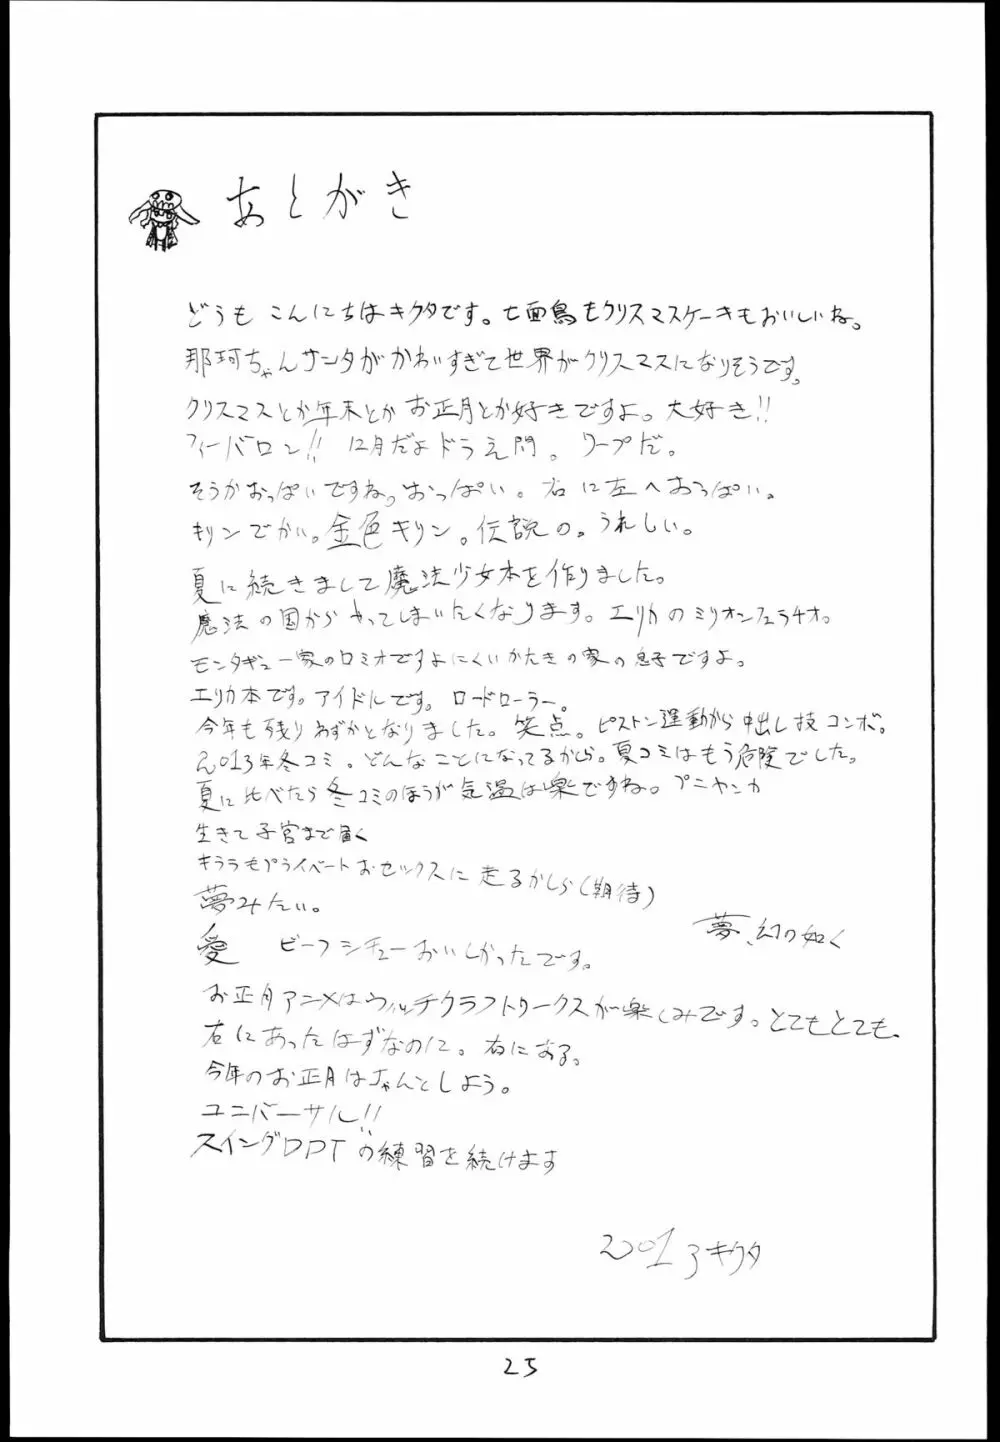 あとがき
どうも こんにちはキクタです。七面鳥もクリスマスケーキもおいしいね。
那珂ちゃんサンタがかわいすぎて世界がクリスマスになりそうです。
クリスマスとか年末とか お正月とか好きですよ。大好き!!
フィーバロン!! 12月だよドラえ門。ワープだ。
そうかおっぱいですね。おっぱい。右に左へおっぱい。
キリンでかい。金色キリン。伝説の。うれしい。
夏に続きまして魔法少女本を作りました。
魔法の国からやってしまいたくなります。エリカのミリオンフェラチオ。
モンタギュー家のロミオですよにくいかたきの家の息子ですよ。
エリカ本です。アイドルです。ロードローラー。
今年も残りわずかとなりました。笑点。ピストン運動から中出し技コンボ。
2013年冬コミ。どんなことになってるかしら。夏コミはもう危険でした。
夏に比べたら冬コミのほうが気温は楽ですね。プニャンカ
生きて子宮まで届く
キララもプライベートおセックスに走るかしら(期待)
夢みたい。
夢、幻の如く
愛 ビーフシチューおいしかったです。
お正月アニメはウィッチクラフトワークスが楽しみです。とてもとても、
右にあったはずなのに。右にある。
今年のお正月はちゃんとしよう。
ユニバーサル!!
スイングDDTの練習を続けます
2013 キクタ
25